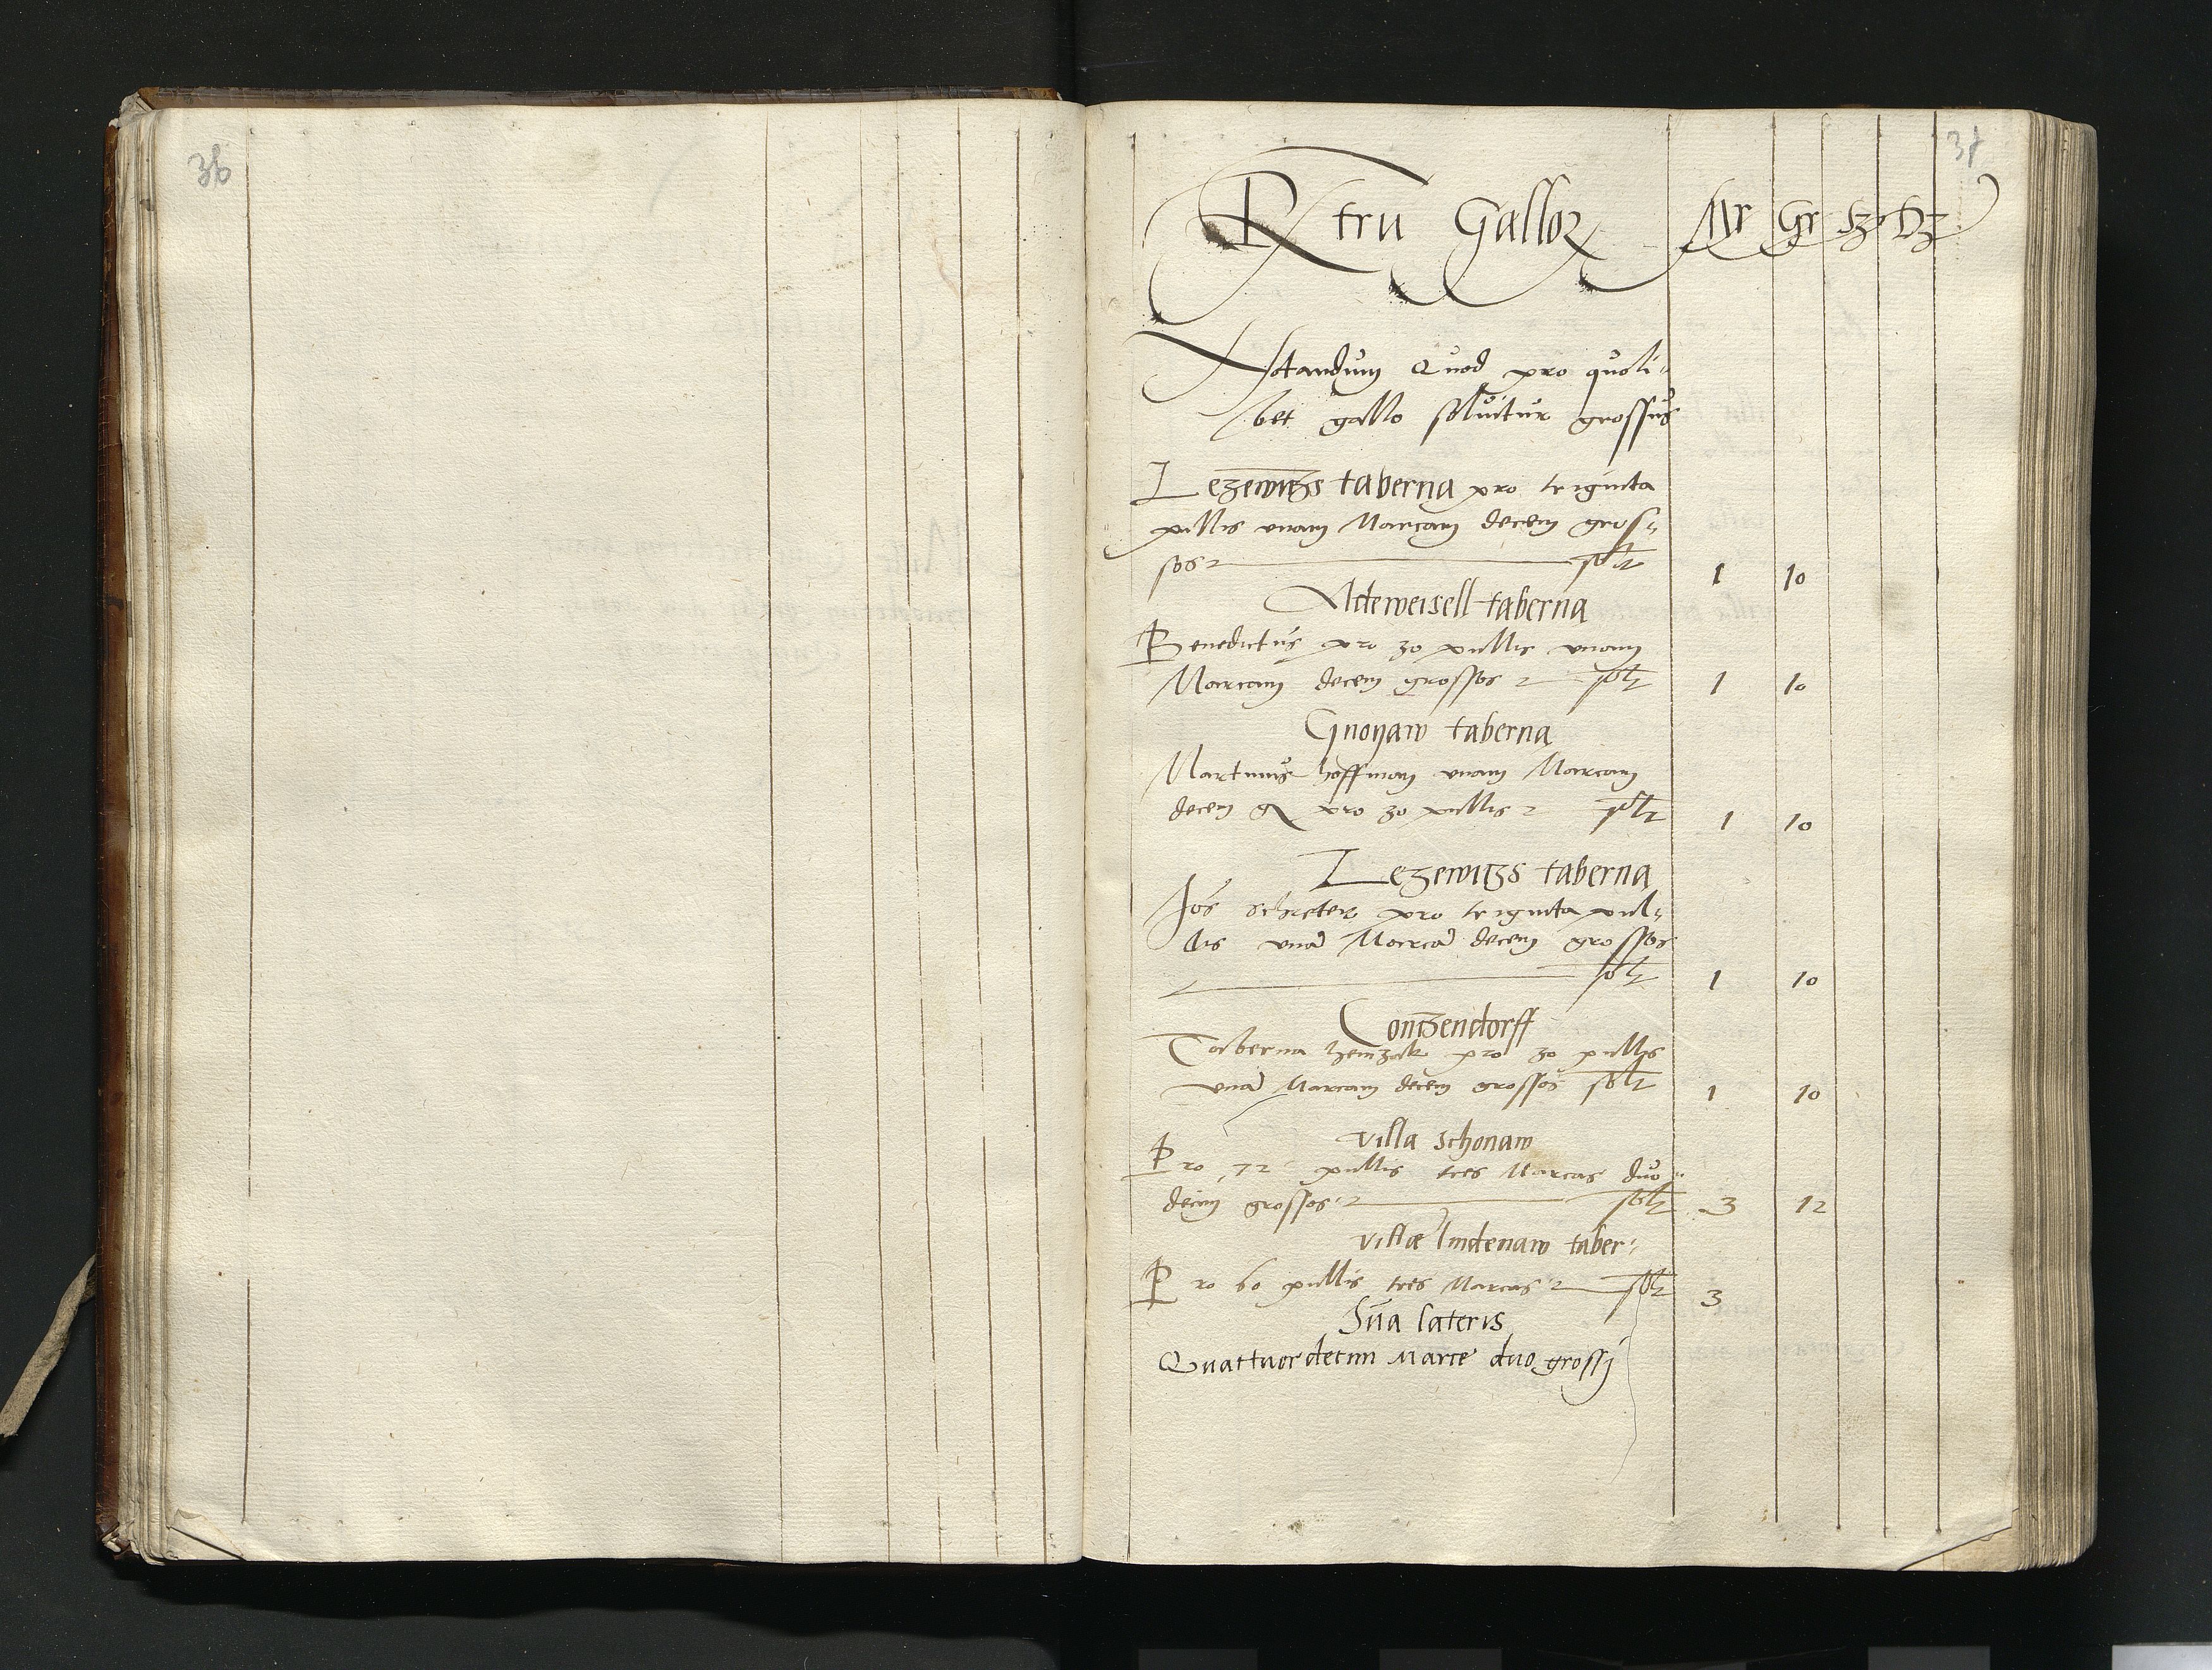 36
37
Rtru Gallorꝫ Mr Gr ß ꝫ
Notandum Quod pro quoli-
bet gallo soluitur grossus
Lezewitzs taberna pro triginta
pullis vnam Marcam decem gros-
sos solt 1 10
Aldeweisell taberna
Benedictus pro 30 pullis vnam
Marcam decem grossos solt 1 10
Gnoyaw taberna
Martinus hoffman vnam Marcam
decem gr pro 30 pullis solt 1 10
Lezewitzs taberna
Jos schreter pro triginta pul-
lis vnā Marcā decem grossos
solt 1 10
Contzendorff
Taberna pro 30 pullis
vnā Marcam decem grossos solt 1 10
villa schonaw
Pro 72 pullis tres Marcas duo-
decim grossos solt 3 12
villæ lindenaw taber:
Pro 60 pullis tres Marcas solt 3
Sūa lateris
Quattuordecim Marce duo grossj